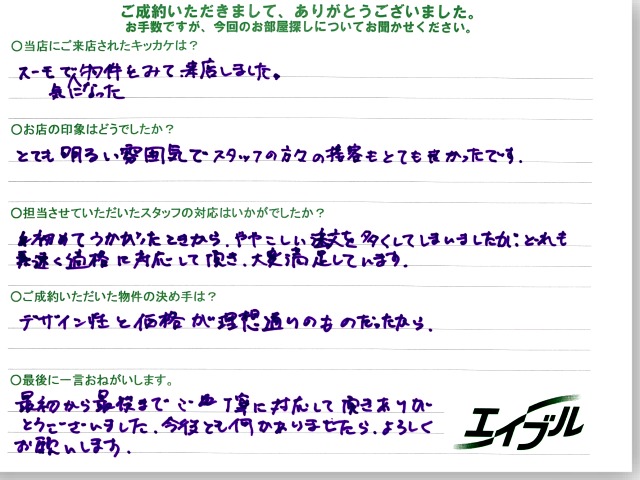 ご成約いただきまして、ありがとうございました。
お手数ですが、今回のお部屋探しについてお聞かせください。
○当店にご来店されたキッカケは？
スーモで物件をみて来店しました。
気になった
○お店の印象はどうでしたか？
とても明るい雰囲気でスタッフの方々の接客もとても良かったです.
○担当させていただいたスタッフの対応はいかがでしたか？
初めてうかがったときから、ややこしい注文を多くしてしまいましたが、どれも
に対応して頂き、大変満足しています.
○ご成約いただいた物件の決め手は？
デザイン性と価格が理想通りのものだったから.
○最後に一言おねがいします。
最初から最後までご丁寧に対応して頂きありが
とうございました. 今後とも何かありましたら、よろしく
お願いします.
エイブル